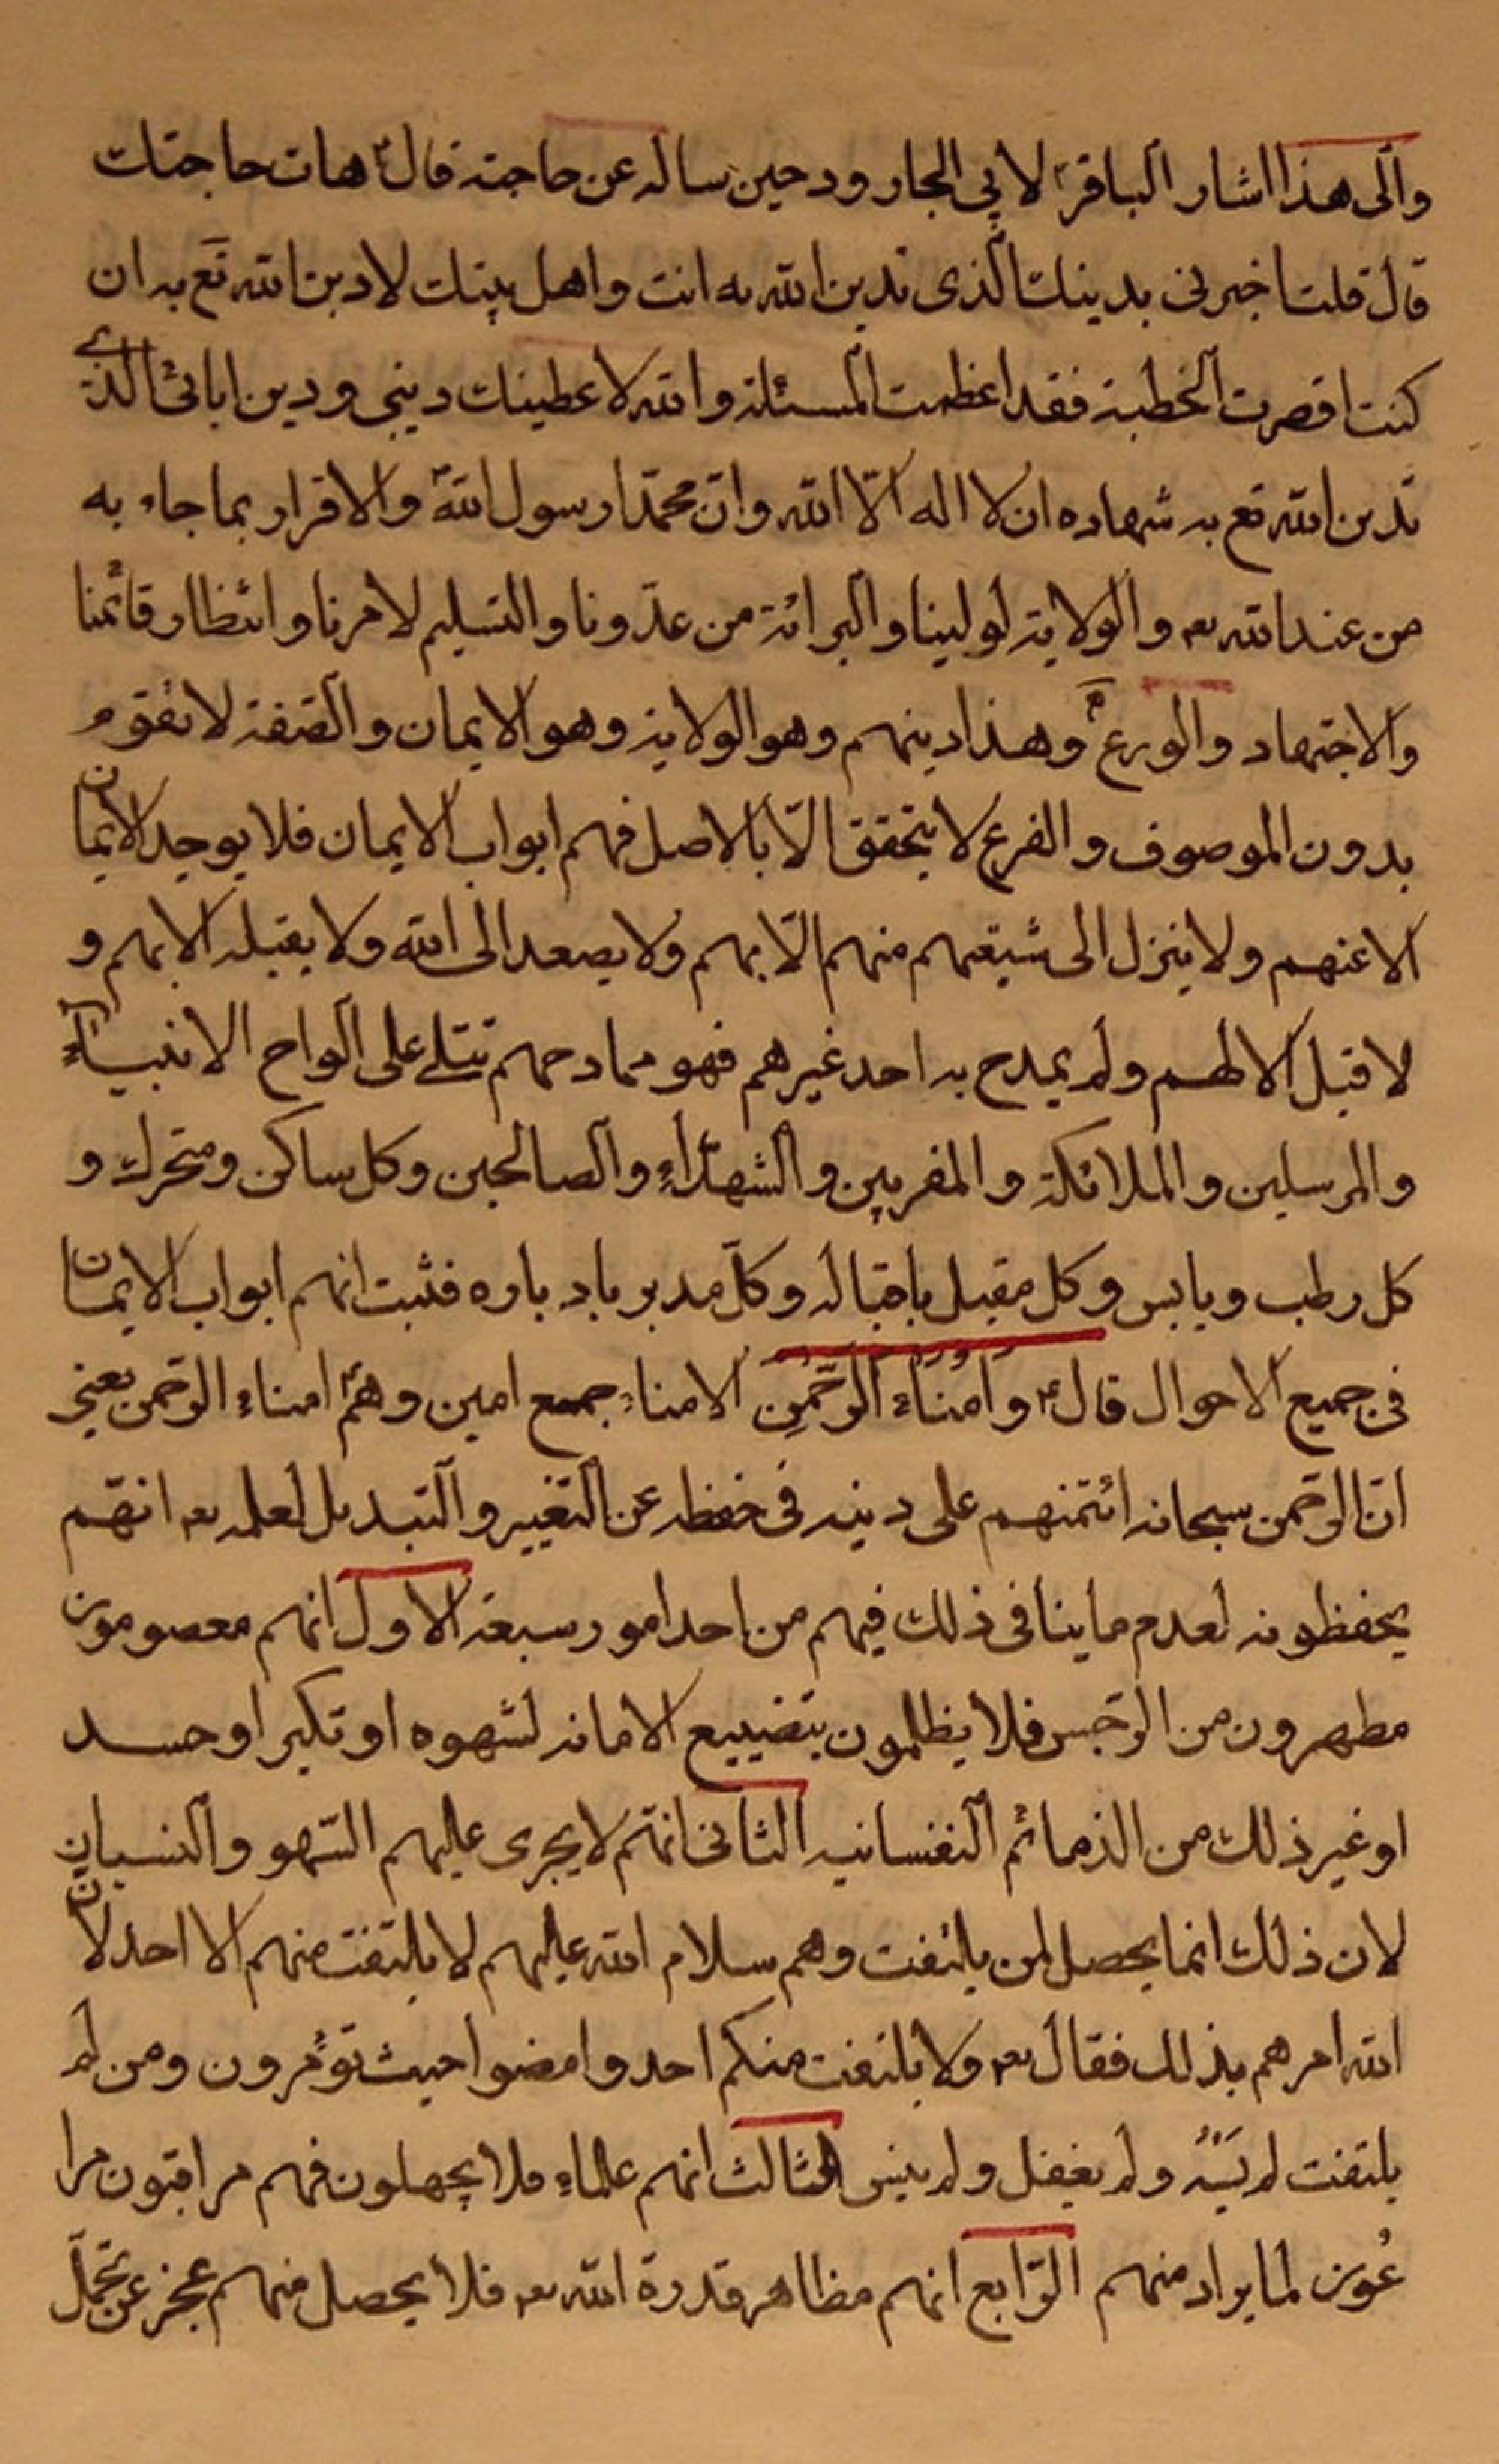 والى هذا اشار الباقر ع لابي الجارود حين ساله عن حاجته قال ع هات حاجتك
قال قلت اخبرنى بدينك الذى تدين الله به انت واهل بيتك لادين الله تع به ان
كنت اقصرت الخطبة فقد اعظمت المسئلة والله لاعطينك دينى ودين ابائى الذى
تدين الله تع به شهاده ان لا اله الّا الله وانّ محمّدا رسول الله ص والاقرار بما جاء به
من عند الله تع والولاية لولينا والبرائة من عدّونا والتسليم لامرنا وانتظار قائمنا
والاجتهاد والورع وهذا دينهم وهو الولاية وهو الايمان والصّفة لا تقوم
بدون الموصوف والفرع لا يتحقق الّا بالاصل فهم ابواب الايمان فلا يوجد الايمان
الا عنهم ولا ينزل الى شيعتهم منهم الّا بهم ولا يصعد الى الله ولا يقبله الا بهم و
لا قبل الا لهم ولم يمدح به احد غيرهم فهو ممادحهم تتلى على الواح الانبيآء
والمرسلين والملائكة والمقربين والشهدآء والصالحين وكل ساكن ومتحرك و
كل رطب ويابس وكل مقبل باقباله وكلّ مدبر بادباره فثبت انهم ابواب الايمان
فى جميع الاحوال قال ع وَاُمَناءُ الرَّحْمنِ الامناء جمع امين وهم ع امناء الرّحمن يعنى
انّ الرّحمن سبحانه ائتمنهم على دينه فى حفظه عن التغيير والتبديل لعلمه تع انهّم
يحفظونه لعدم ما ينافى ذلك فيهم من احد امور سبعة الاول انهم معصومون
مطهرون من الرّجس فلا يظلمون بتضييع الامانه لشهوه او تكبر او حسد
او غير ذلك من الذمائم النفسانيه الثانى انهّم لا يجرى عليهم السّهو والنسيان
لان ذلك انما يحصل لمن يلتفت وهم سلام الله عليهم لا يلتفت منهم الا احد لان
الله امرهم بذلك فقال تع ولا يلتفت منكم احد وامضوا حيث تؤمرون ومن لم
يلتفت لم يَسْهُ ولم يغفل ولم ينس الثالث انهم علماء فلا يجهلون فهم مراقبون مرا
عُون لما يراد منهم الرّابع انهم مظاهر قدرة الله تع فلا يحصل منهم عجز عن تحمّل